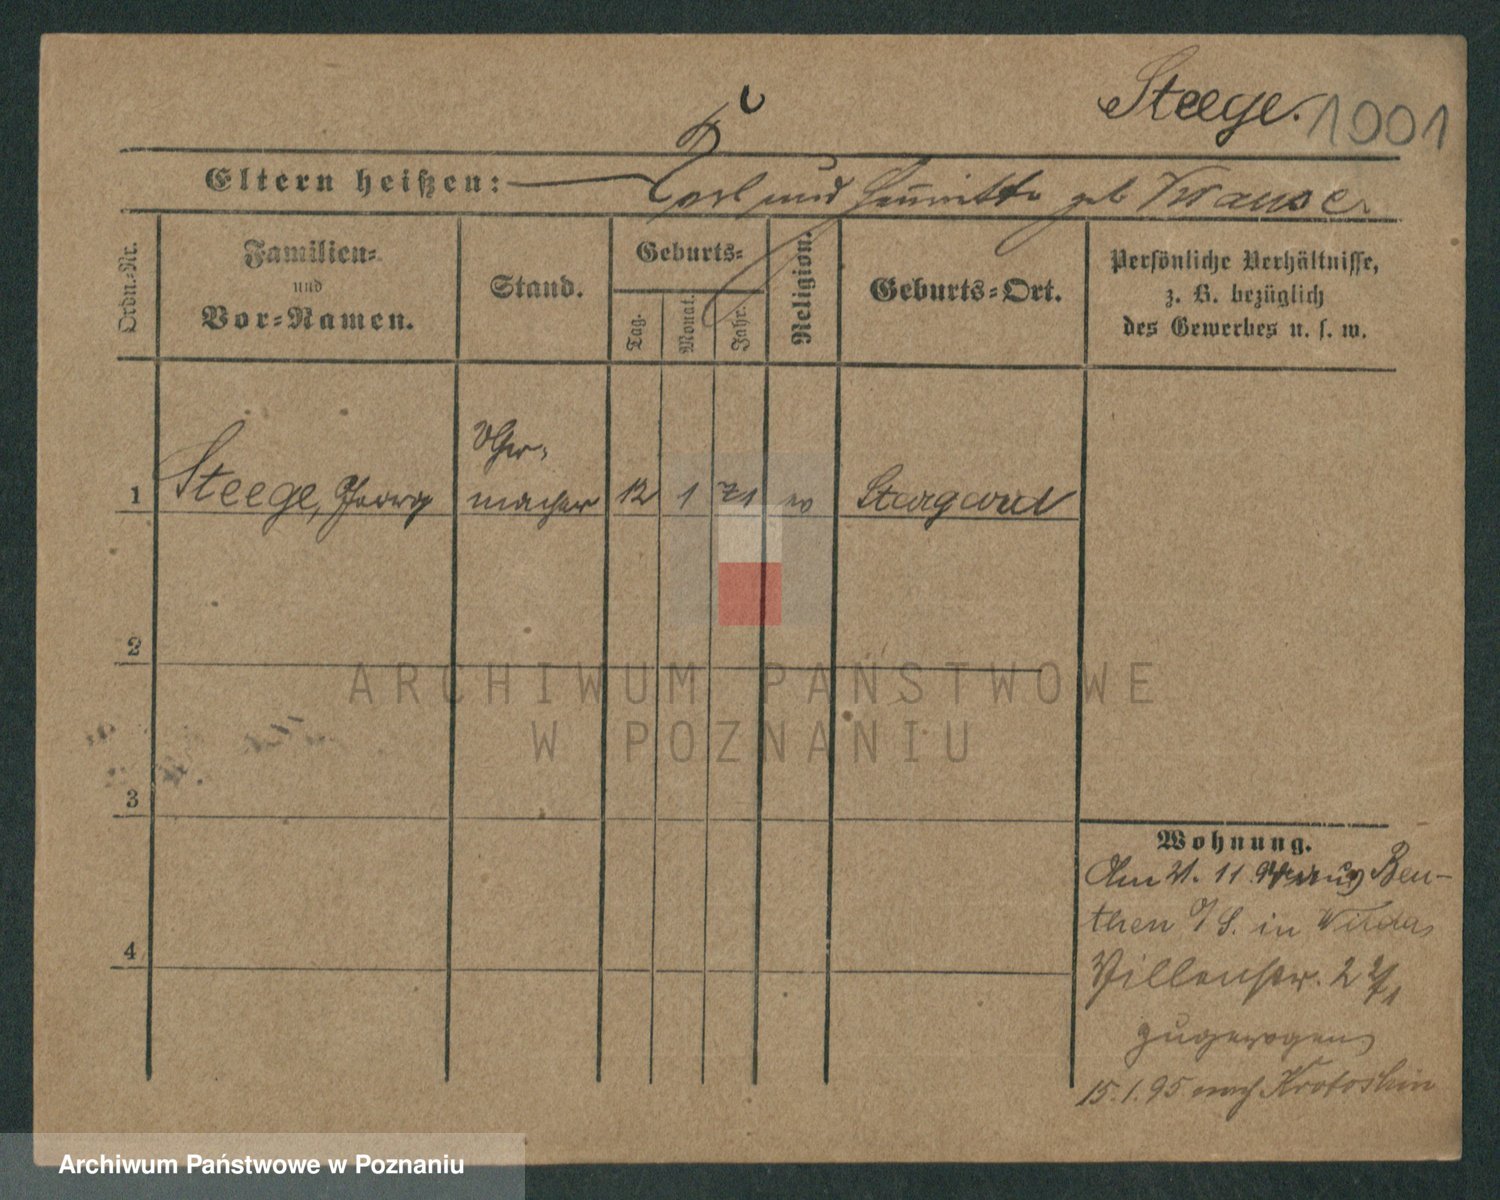 Steege. 1901
Eltern heißen: Carl und Henriette geb Krause.
Ordn.-Nr.
Familien-
und
Vor-Namen.
Stand.
Geburts-
Tag.
Monat.
Jahr.
Religion.
Geburts-Ort.
Persönliche Verhältnisse,
z. B. bezüglich
des Gewerbes u. s. w.
Uhr-
1 Steege, Georg macher 12 1 71 ev Stargard
2
3
4
Wohnung.
Am 21. 11. 94 aus Beu-
then O/S. in Wilda,
Villenstr. 2
zugezogen
15.1.95 nach Krotoschin
ARCHIWUM PAŃSTWOWE
W POZNANIU
Archiwum Państwowe w Poznaniu